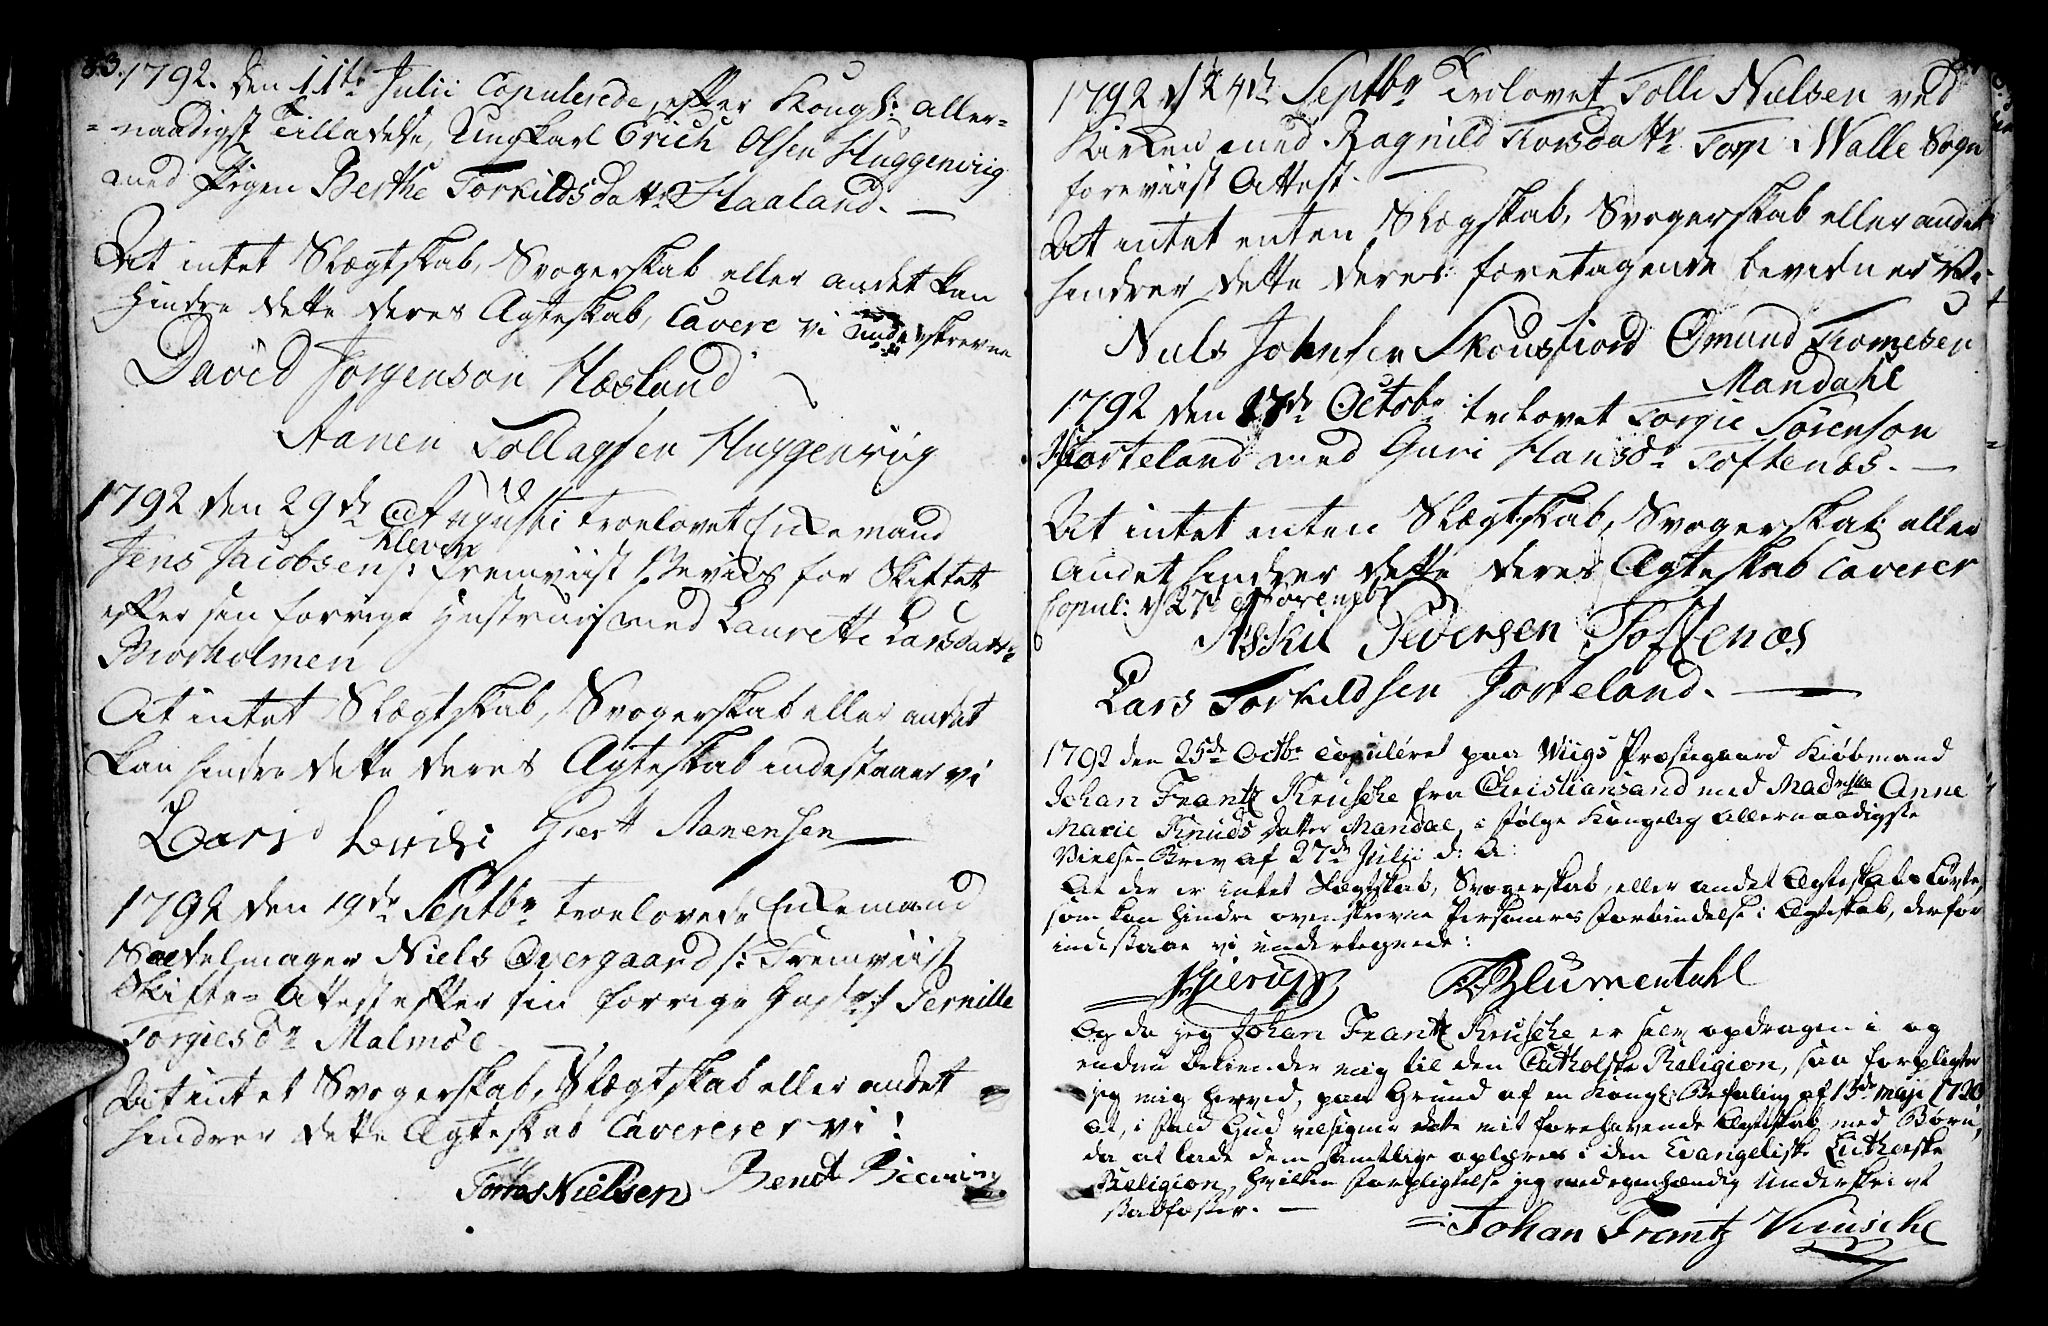 83.
1792. den 11te Julii Copulerede, efter Kongl: aller-
-naadigst Tilladelse, Ungkarl Erich Olsen Huggenviig
med Pigen Berthe Torkildsdattr Haaland.
At intet Slægtskab, Svogerskab eller andet kan
hindre dette deres Ægteskab, Cavere vi underskrevne
David Jorgenson Hæsland
Aanen Tollagsen Huggenviig
1792 den 29de Augusti troelovet Enkemand
Jens Jacobsen Kleven /: Fremviist Beviis for Skiftet
efter sin forrige Hustrue :/ med Laurette Larsdattr
Biorholmen
At intet Slægtskab, Svogerskab eller andet
kan hindre dette deres Ægteskab indestaaer vi
Giert Aanensen
1792 den 19de Septbr troelovede Enkemand
Sadelmager Niels Overgaard /: Fremviist
Skifte-Attest efter sin forrige Hustr: :/ Pernille
Torgiesdr Malmøe
At intet Svogerskab, Slægtskab eller andet
hindrer dette Ægteskab Cavererer vi!
Torres Nielsen Bendt
1792 d 24de Septbr Trolovet Tolle Nielsen ved
Kirken med Ragnild Torsdattr Torp Walle Sogn
foreviist Attest.
At intet enten Slægskab, Svogerskab eller andet
hindrer dette deres foretagende bevidner Vi
Niels Johnsen Skousfiord Ømund Tomesen
Mandahl
1792 den 17de Octobr trolovet Torgie Sørenson
Hiorteland med Guri Hansdr Toftenes.
At intet enten Slægtskab, Svogerskab eller
Andet hindrer dette deres Ægteskab Caverer
Copul: d 27de Novembr
Askil Pedersen Toftenæs
Lars Torkildsen Jorteland.
1792 den 25de Octbr Copuléret paa Wiigs Præstegaard Kiøbmand
Johan Frantz Krusche fra Christiansand med Madmslle Anne
Marie Knuds Datter Mandal, i følge Kongelig Allernaadigste
Vielse-Brev af 27de Julii d: A:
At der er intet Slægtskab, Svogerskab, eller andet Ægteskabs
som kan hindre ovenskrevne Personers Forbindelse i Ægteskab, derfor
indestaae vi undertegnede:
Hierup Blumentahl
Og da jeg Johan Frantz Krusche er selv opdragen i og
endnu bekiender mig til den Catholske Religion, saa forpligter
jeg mig herved, paa Grund af en Kongl: Befaling af 15de Maji 1720
at, i fald Gud velsigner dette mit forehavende Ægteskab med Børn,
da at lade dem samtlige oplæres i den Evangeliske Lutherske
Religion, hvilken Forpligtelse jeg med egenhændig Underskrivt
stadfæster.
Johan Frantz Krusche